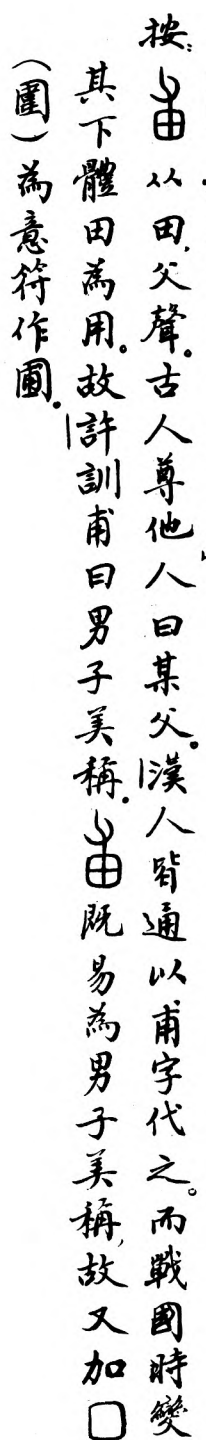 按：从田，父聲。古人尊他人曰某父。漢人皆通以甫字代之。而戰國時變
其下體田為用。故許訓甫曰男子美稱。既易為男子美稱，故又加囗
（圍）為意符作圃。